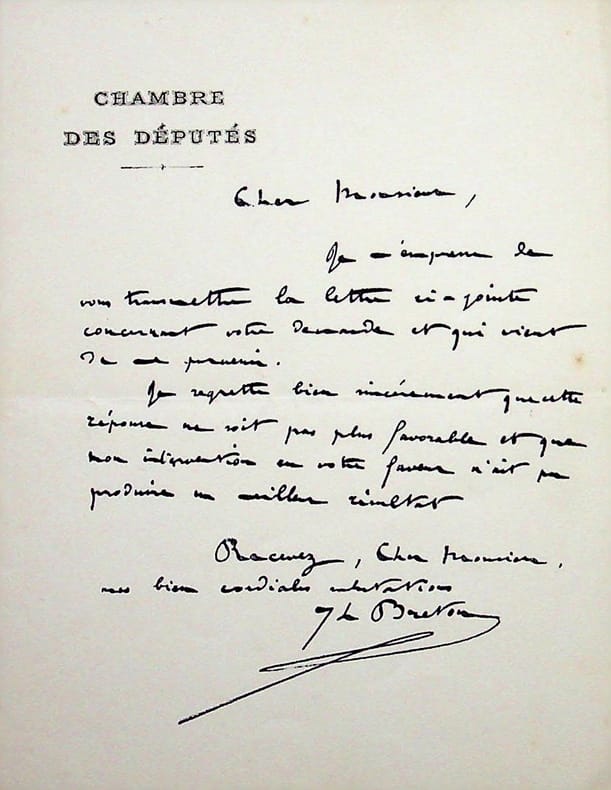 CHAMBRE
DES DÉPUTÉS
Cher Monsieur,
Je m'empresse de
vous transmettre la lettre ci-jointe
concernant votre demande et qui vient
de me parvenir.
Je regrette bien sincèrement que cette
réponse ne soit pas plus favorable et que
mon intervention en votre faveur n'ait pu
produire un meilleur résultat
Recevez, Cher Monsieur,
mes bien cordiales salutations
JL Breton